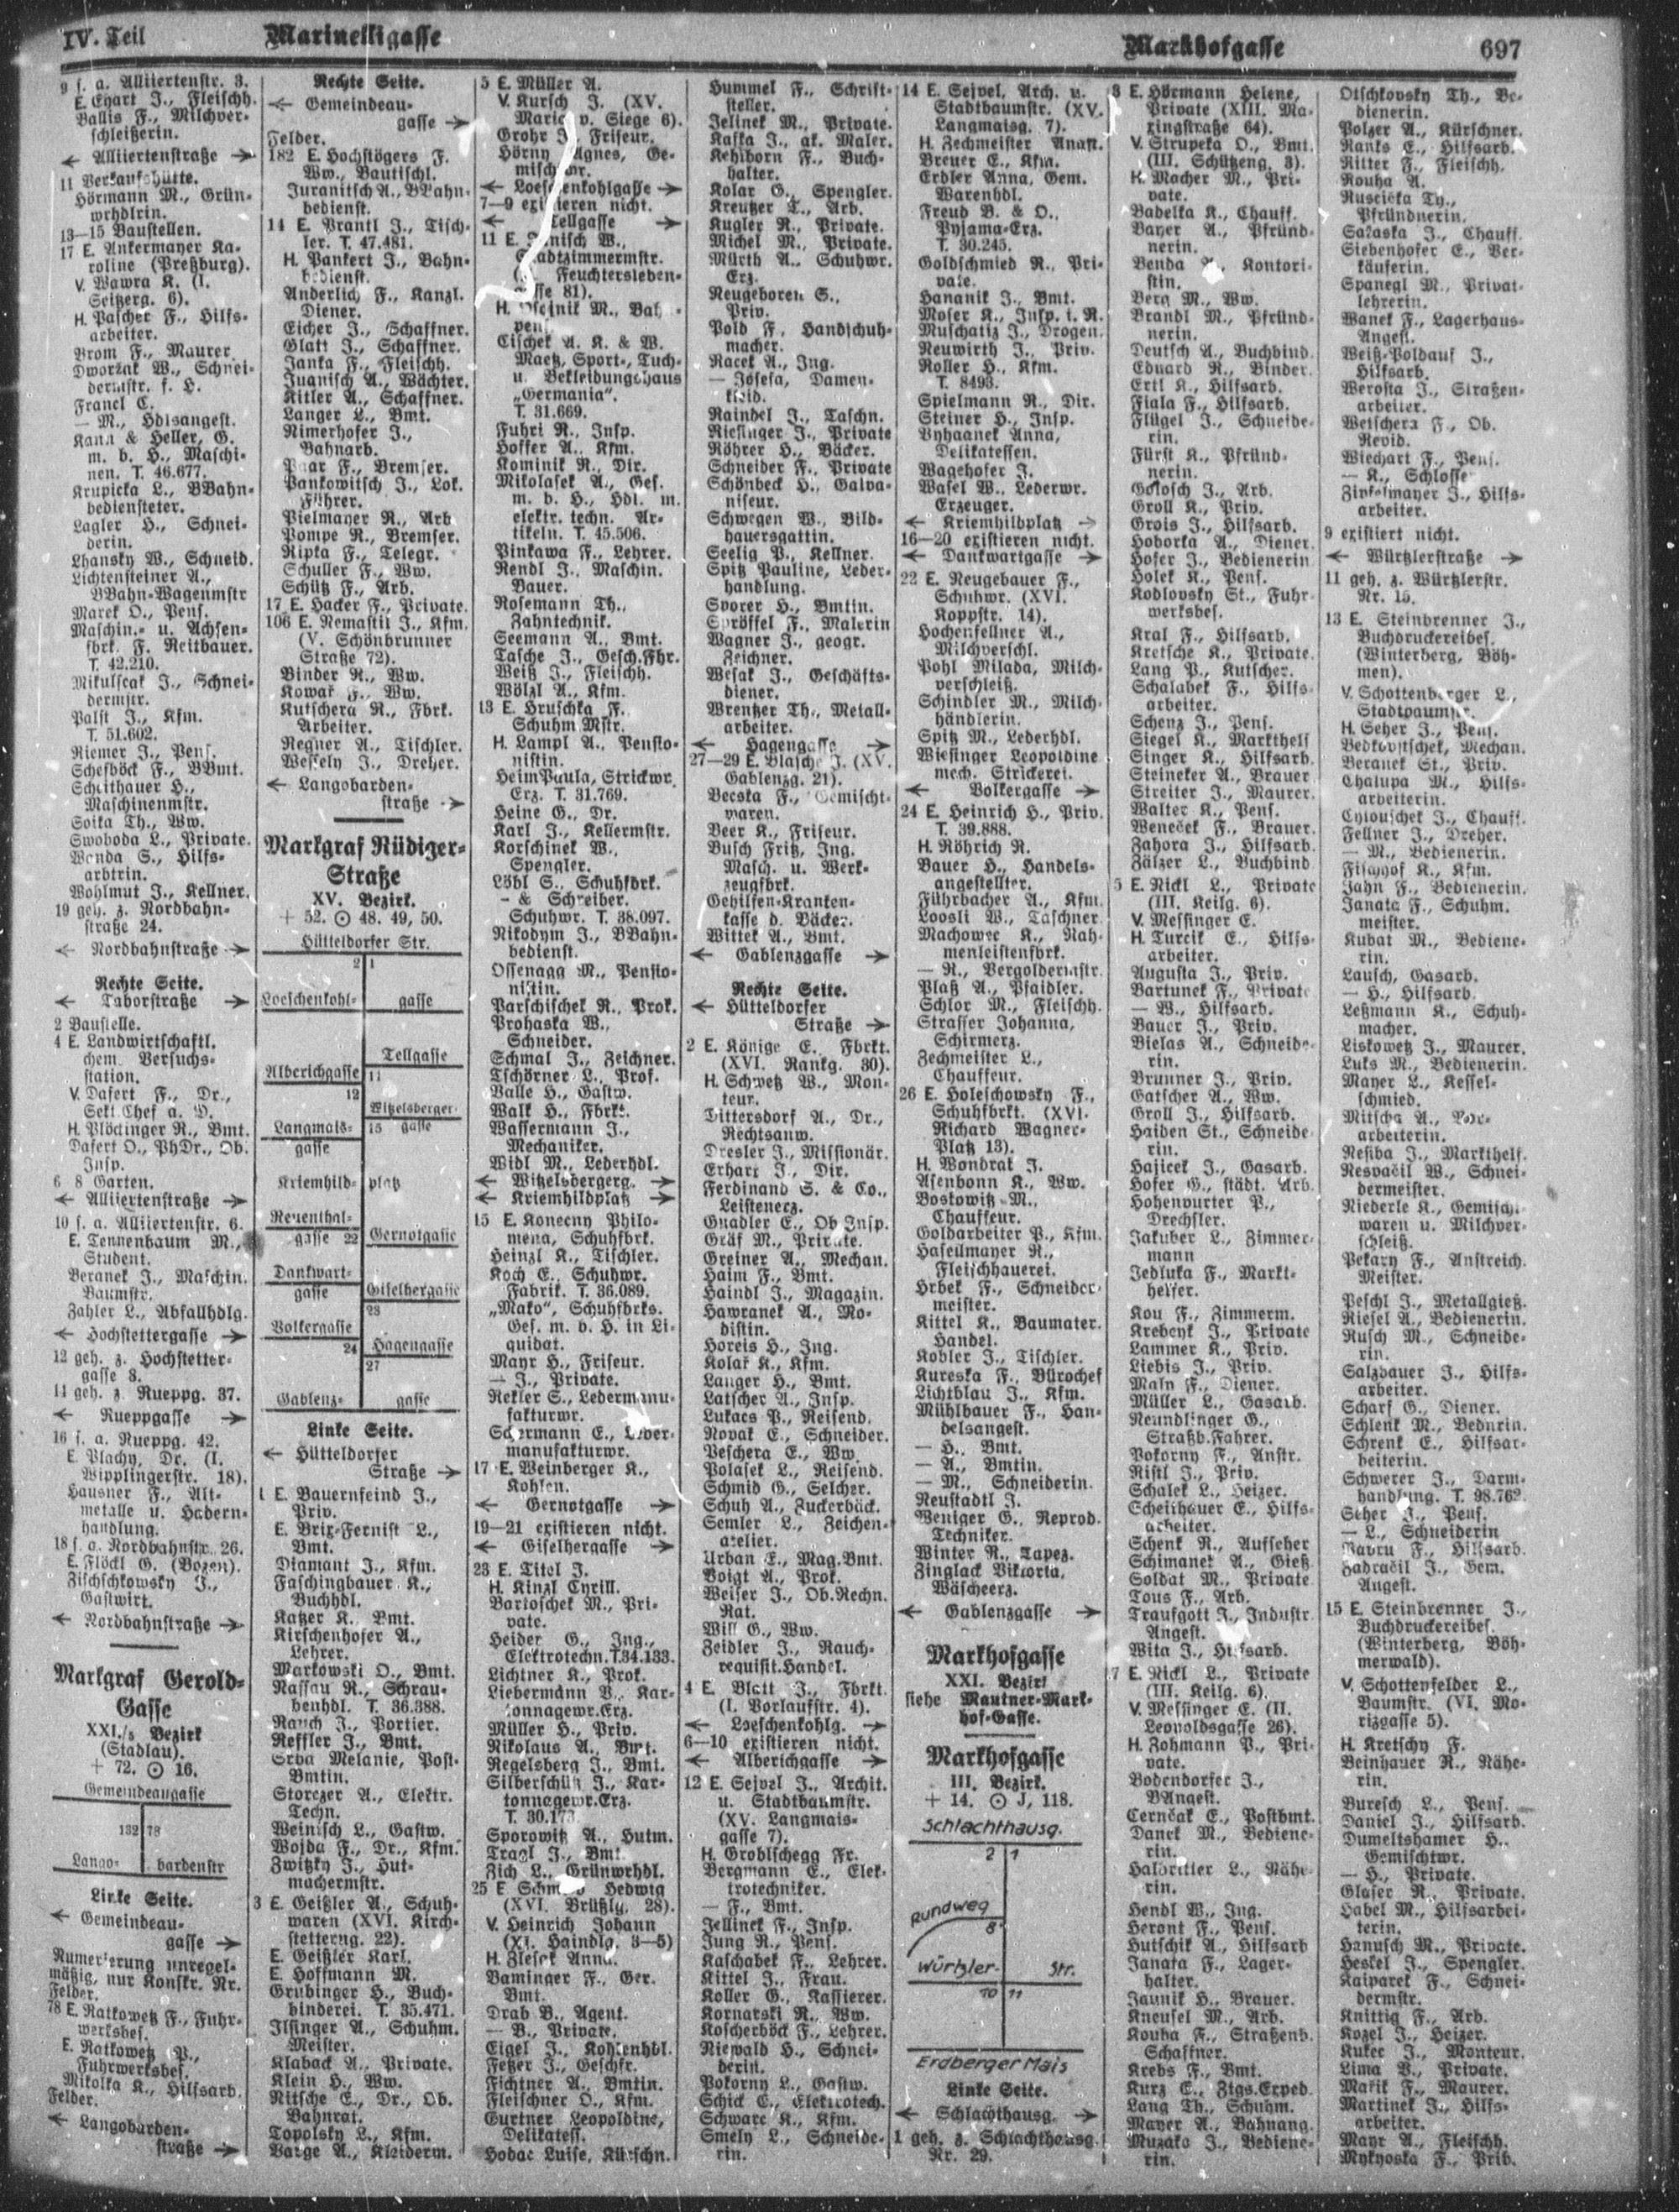 IV. Teil
Marinelligasse
Markhofgasse
697
9 s. a. Alliiertenstr. 3.
E. Eyart J., Fleischh.
Ballis F., Milchver-
schleißerin.
← Alliiertenstraße →
11 Verkaufshütte.
Hörmann M., Grün-
wrhdlrin.
13—15 Baustellen.
17 E. Ankermayer Ka-
roline (Preßburg).
V. Wawra K. (I.
Seitzerg. 6).
H. Pascher F., Hilfs-
arbeiter.
Brom F., Maurer
Dworžak W., Schnei-
dermstr. f. H.
Francl C.
— M., Hdlsangest.
Kann & Heller, G.
m. b. H., Maschi-
nen. T. 46.677.
Krupicka L., BBahn-
bediensteter.
Lagler H., Schnei-
derin.
Lhansky W., Schneid.
Lichtensteiner A.,
BBahn-Wagenmstr
Marek O., Pens.
Maschin.- u. Achsen-
fbrk. F. Reitbauer.
T. 42.210.
Mikulscak J., Schnei-
dermstr.
Palst J., Kfm.
T. 51.602.
Riemer J., Pens.
Schefböck F., BBmt.
Scheithauer H.,
Maschinenmstr.
Soika Th., Ww.
Swoboda L., Private.
Wanda S., Hilfs-
arbtrin.
Wohlmut J., Kellner.
19 geh. z. Nordbahn-
straße 24.
← Nordbahnstraße →
Rechte Seite.
← Taborstraße →
2 Baustelle.
4 E. Landwirtschaftl.
chem. Versuchs-
station.
V. Dafert F., Dr.,
Sekt.Chef a. D.
H. Plöckinger R., Bmt.
Dafert O., PhDr., Ob.
Insp.
6 8 Garten.
← Alliiertenstraße →
10 s. a. Alliiertenstr. 6.
E. Tennenbaum M.,
Student.
Beranek J., Maschin.
Baumstr.
Zahler L., Abfallhdlg.
← Hochstettergasse →
12 geh. z. Hochstetter-
gasse 3.
14 geh. z. Rueppg. 37.
← Rueppgasse →
16 s. a. Rueppg. 42.
E. Plachy, Dr. (I.
Wipplingerstr. 18).
Hausner F., Alt-
metalle u. Hadern-
handlung.
18 s. a. Nordbahnstr. 26.
E. Flöckl G. (Bozen).
Zischschkowsky J.,
Gastwirt.
← Nordbahnstraße →
Markgraf Gerold-
Gasse
XXI./5 Bezirk
(Stadlau).
+ 72. ⊙ 16.
Gemeindeaugasse
132 78
Lango- bardenstr
Linke Seite.
← Gemeindeau-
gasse →
Numerierung unregel-
mäßig, nur Konskr. Nr.
Felder.
78 E. Ratkowetz F., Fuhr-
werksbes.
E. Ratkowetz P.,
Fuhrwerksbes.
Mikolka K., Hilfsarb.
Felder.
← Langobarden-
straße →
Rechte Seite.
← Gemeindeau-
gasse →
Felder.
182 E. Hochstögers F.
Ww., Bautischl.
Juranitsch A., BBahn-
bedienst.
14 E. Prantl J., Tisch-
ler. T. 47.481.
H. Pankert J., Bahn-
bedienst.
Anderlich F., Kanzl.
Diener.
Eicher J., Schaffner.
Glatt J., Schaffner.
Janka F., Fleischh.
Juanisch A., Wächter.
Kitler A., Schaffner.
Langer L., Bmt.
Nimerhofer J.,
Bahnarb.
Paar F., Bremser.
Pankowitsch J., Lok.
Führer.
Pielmayer R., Arb
Pompe R., Bremser.
Ripka F., Telegr.
Schuller F., Ww.
Schütz F., Arb.
17 E. Hacker F., Private.
106 E. Nemastil J., Kfm.
(V. Schönbrunner
Straße 72).
Binder R., Ww.
Kowař F., Ww.
Kutschera R., Fbrk.
Arbeiter.
Regner A., Tischler.
Wessely J., Dreher.
← Langobarden-
straße →
Markgraf Rüdiger-
Straße
XV. Bezirk.
+ 52. ⊙ 48. 49, 50.
Hütteldorfer Str.
2 1
Loeschenkohl- gasse
Tellgasse
Alberichgasse
11
12
Witzelsberger-
gasse
Langmais-
gasse
15
Kriemhild- platz
Reuenthal-
gasse 22
Gernotgasse
Dankwart-
gasse
Giselhergasse
23
Volkergasse
24
Hagengasse
27
Gablenz- gasse
Linke Seite.
← Hütteldorfer
Straße →
1 E. Bauernfeind J.,
Priv.
E. Brix-Fernist L.,
Bmt.
Diamant J., Kfm.
Faschingbauer K.,
Buchhdl.
Katzer K. Bmt.
Kirschenhofer A.,
Lehrer.
Markowski O., Bmt.
Nassau R., Schrau-
benhdl. T. 36.388.
Rauch J., Portier.
Reffler J., Bmt.
Srba Melanie, Post-
Bmtin.
Storczer A., Elektr.
Techn.
Weinisch L., Gastw.
Wojda F., Dr., Kfm.
Zwitzky J., Hut-
machermstr.
3 E. Geißler A., Schuh-
waren (XVI. Kirch-
stetterng. 22).
E. Geißler Karl.
E. Hoffmann M.
Grubinger H., Buch-
binderei. T. 35.471.
Ilsinger A., Schuhm.
Meister.
Klaback A., Private.
Klein H., Ww.
Nitsche E., Dr., Ob.
Bahnrat.
Topolsky L., Kfm.
Varge A., Kleiderm.
5 E. Müller A.
V. Kursch J. (XV.
Maria v. Siege 6).
Grohr J., Friseur.
Hörny Agnes, Ge-
mischwr.
← Loeschenkohlgasse →
7—9 existieren nicht.
← Tellgasse →
11 E. W.,
Stadtzimmermstr.
Feuchtersleben-
gasse 81).
H. M., Bahn-
pens.
Cischek A. K. & W.
Maetz, Sport-, Tuch-
u. Bekleidungshaus
„Germania".
T. 31.669.
Fuhri R., Insp.
Hoffer A., Kfm.
Kominik R., Dir.
Mikolasek A., Ges.
m. b. H., Hdl. m.
elektr. techn. Ar-
tikeln. T. 45.506.
Pinkawa F., Lehrer.
Rendl J., Maschin.
Bauer.
Rosemann Th.,
Zahntechnik.
Seemann A., Bmt.
Tasche J., Gesch.Fhr.
Weiß J., Fleischh.
Wölzl A., Kfm.
13 E. Hruschka F.
Schuhm.Mstr.
H. Lampl A., Pensio-
nistin.
Heim Paula, Strickwr.
Erz. T. 31.769.
Heine G., Dr.
Karl J., Kellermstr.
Korschinek W.,
Spengler.
Löbl S., Schuhfbrk.
— & Schreiber.
Schuhwr. T. 38.097.
Nikodym J., BBahn-
bedienst.
Ossenagg M., Pensio-
nistin.
Parschischek R., Prok.
Prohaska W.,
Schneider.
Schmal J., Zeichner.
Tschörner L., Prof.
Valle H., Gastw.
Walk H., Fbrkt.
Wassermann J.,
Mechaniker.
Widl M., Lederhdl.
← Witzelsbergerg. →
← Kriemhildplatz →
15 E. Konecny Philo-
mena, Schuhfbrk.
Heinzl K., Tischler.
Koch E., Schuhwr.
Fabrik. T. 36.089.
„Mako", Schuhfbrks.
Ges. m. b. H. in Li-
quidat.
Mayr H., Friseur.
— J., Private.
Rekler S., Ledermanu-
fakturwr.
Schermann E., Leder-
manufakturwr.
17 E. Weinberger K.,
Kohlen.
← Gernotgasse →
19—21 existieren nicht.
← Giselhergasse →
23 E. Titel J.
H. Kinzl Cyrill.
Bartoschek M., Pri-
vate.
Heider G., Ing.,
Elektrotechn. T.34.133.
Lichtner K., Prok.
Liebermann B., Kar-
tonnagewr.Erz.
Müller H., Priv.
Nikolaus A., Bmt.
Regelsberg J., Bmt.
Silberschütz J., Kar-
tonnagewr.Erz.
T. 30.173.
Sporowitz A., Hutm.
Tragl J., Bmt.
Zich L., Grünwrhdl.
25 E Hedwig
(XVI. Brüßlg. 28).
V. Heinrich Johann
(XI. Haindlg. 3—5)
H. Zlesak Anna.
Baminger F., Ger.
Bmt.
Drab B., Agent.
— B., Private.
Eigel J., Kohlenhdl.
Fetzer J., Geschfr.
Fichtner A., Bmtin.
Fleischner O., Kfm.
Gurtner Leopoldine,
Delikatess.
Hodac Luise, Kürschn.
Hummel F., Schrift-
steller.
Jelinek M., Private.
Kafka J., ak. Maler.
Kehlborn F., Buch-
halter.
Kolar G., Spengler.
Kreutzer T., Arb.
Kugler R., Private.
Michel M., Private.
Mürth A., Schuhwr.
Erz.
Neugeboren S.,
Priv.
Pold F., Handschuh-
macher.
Racek A., Ing.
— Josefa, Damen-
kleid.
Raindel J., Taschn.
Riesinger J., Private
Röhrer H., Bäcker.
Schneider F., Private
Schönbeck H., Galva-
niseur.
Schwegen W., Bild-
hauersgattin.
Seelig P., Kellner.
Spitz Pauline, Leder-
handlung.
Sporer H., Bmtin.
Spröffel F., Malerin
Wagner J., geogr.
Zeichner.
Wesak J., Geschäfts-
diener.
Wrentzer Th., Metall-
arbeiter.
← Hagengasse →
27—29 E. Blasche J. (XV.
Gablenzg. 21).
Becska F., Gemischt-
waren.
Beer K., Friseur.
Busch Fritz, Ing.
Masch. u. Werk-
zeugfbrk.
Gehilfen-Kranken-
kasse d. Bäcker.
Wittek A., Bmt.
← Gablenzgasse →
Rechte Seite.
← Hütteldorfer
Straße →
2 E. Könige E. Fbrkt.
(XVI. Rankg. 30).
H. Schwetz W., Mon-
teur.
Dittersdorf A., Dr.,
Rechtsanw.
Dresler J., Missionär.
Erhart J., Dir.
Ferdinand S. & Co.,
Leistenerz.
Gnadler E., Ob Insp.
Gräf M., Private.
Greiner A., Mechan.
Haim F., Bmt.
Haindl J., Magazin.
Hawranek A., Mo-
distin.
Horeis H., Ing.
Kolař K., Kfm.
Langer H., Bmt.
Latscher A., Insp.
Lukacs P., Reisend.
Novak E., Schneider.
Peschera E., Ww.
Polasek L., Reisend.
Schmid G., Selcher.
Schuh A., Zuckerbäck.
Semler L., Zeichen-
atelier.
Urban E., Mag.Bmt.
Voigt A., Prok.
Weiser J., Ob.Rechn.
Rat.
Will G., Ww.
Zeidler J., Rauch-
requisit.Handel.
4 E. Blatt J., Fbrkt.
(I. Vorlaufstr. 4).
← Loeschenkohlg. →
6—10 existieren nicht.
← Alberichgasse →
12 E. Sejvel J., Archit.
u. Stadtbaumstr.
(XV. Langmais-
gasse 7).
H. Groblschegg Fr.
Bergmann E., Elek-
trotechniker.
— F., Bmt.
Jellinek F., Insp.
Jung R., Pens.
Kaschabek F., Lehrer.
Kittel J., Frau.
Koller G., Kassierer.
Kornatski R., Ww.
Koscherböck F., Lehrer.
Niewald H., Schnei-
derin.
Pokorny L., Gastw.
Schick E., Elektrotech.
Schwarc K., Kfm.
Smely L., Schneide-
rin.
14 E. Sejvel, Arch. u.
Stadtbaumstr. (XV.
Langmaisg. 7).
H. Zechmeister Anast.
Breuer E., Kfm.
Erdler Anna, Gem.
Warenhdl.
Freud B. & O.,
Pyjama-Erz.
T. 30.245.
Goldschmied R., Pri-
vate.
Hananik J., Bmt.
Moser K., Insp. i. R.
Muschatiz J., Drogen.
Neuwirth J., Priv.
Roller H., Kfm.
T. 8493.
Spielmann R., Dir.
Steiner H., Insp.
Vyhaanek Anna,
Delikatessen.
Wagehofer J.
Wasel W., Lederwr.
Erzeuger.
← Kriemhildplatz →
16—20 existieren nicht.
← Dankwartgasse →
22 E. Neugebauer F.,
Schuhwr. (XVI.
Koppstr. 14).
Hochenfellner A.,
Milchverschl.
Pohl Milada, Milch-
verschleiß.
Schindler M., Milch-
händlerin.
Spitz M., Lederhdl.
Wiesinger Leopoldine
mech. Strickerei.
← Volkergasse →
24 E. Heinrich H., Priv.
T. 39.888.
H. Röhrich R.
Bauer H., Handels-
angestellter.
Führbacher A., Kfm.
Loosli W., Taschner.
Machowec K., Näh-
menleistenfbrk.
— R., Vergoldermstr.
Plaß A., Pfaidler.
Schlor M., Fleischh.
Strasser Johanna,
Schirmerz.
Zechmeister L.,
Chauffeur.
26 E. Holeschowsky F.,
Schuhfbrkt. (XVI.
Richard Wagner-
Platz 13).
H. Wondrak J.
Asenbonn K., Ww.
Boskowitz M.,
Chauffeur.
Goldarbeiter P., Kfm.
Haseilmayer R.,
Fleischhauerei.
Hrbek F., Schneider-
meister.
Kittel K., Baumater.
Handel.
Kobler J., Tischler.
Kureska F., Bürochef
Lichtblau J., Kfm.
Mühlbauer F., Han-
delsangest.
— H., Bmt.
— A., Bmtin.
— M., Schneiderin.
Neustadtl J.
Weniger G., Reprod.
Techniker.
Winter R., Tapez.
Zinglack Viktoria,
Wäscheerz.
← Gablenzgasse →
Markhofgasse
XXI. Bezirk
siehe Mautner-Mark-
hof-Gasse.
Markhofgasse
III. Bezirk.
+ 14. ⊙ J, 118.
Schlachthausg.
2 1
Rundweg
8
Würtzler- Str.
10 11
Erdberger Mais
Linke Seite.
← Schlachthausg. →
1 geh. z. Schlachthausg.
Nr. 29.
3 E. Hörmann Helene,
Private (XIII. Ma-
xingstraße 64).
V. Strupeka O., Bmt.
(III. Schützeng. 3).
H. Macher M., Pri-
vate.
Badelka K., Chauff.
Bayer A., Pfründ-
nerin.
Benda Kontori-
stin.
Berg M., Ww.
Brandl M., Pfründ-
nerin.
Deutsch A., Buchbind.
Eduard R., Binder.
Ertl K., Hilfsarb.
Fiala F., Hilfsarb.
Flügel J., Schneide-
rin.
Fürst K., Pfründ-
nerin.
Golosch J., Arb.
Groll K., Priv.
Grois J., Hilfsarb.
Hoborka A., Diener.
Hofer J., Bedienerin
Holek K., Pens.
Kodlovsky St., Fuhr-
werksbes.
Kral F., Hilfsarb.
Kretsche K., Private.
Lang P., Kutscher.
Schalabek F., Hilfs-
arbeiter.
Schenz J., Pens.
Siegel K., Markthelf
Singer K., Hilfsarb.
Steineker A., Brauer
Streiter J., Maurer.
Walter K., Pens.
Weneček F., Brauer.
Zahora J., Hilfsarb.
Zälzer L., Buchbind
5 E. Nickl L., Private
(III. Keilg. 6).
V. Messinger E.
H. Turcik E., Hilfs-
arbeiter.
Augusta J., Priv.
Bartunek F., Private
— W., Hilfsarb.
Bauer J., Priv.
Bielas A., Schneide-
rin.
Brunner J., Priv.
Gatscher A., Ww.
Groll J., Hilfsarb.
Haiden St., Schneide-
rin.
Hajicek J., Gasarb.
Hofer G., städt. Arb.
Hohenwurter P.,
Drechsler.
Jakuber L., Zimmer-
mann
Jedluka F., Markt-
helfer.
Kou F., Zimmerm.
Krebcyk J., Private
Lammer K., Priv.
Liebis J., Priv.
Maly F., Diener.
Müller L., Gasarb.
Neundlinger G.,
Straßb.Fahrer.
Pokorny F., Anstr.
Ristl J., Priv.
Schalek L., Heizer.
Scheithauer E., Hilfs-
arbeiter.
Schenk R., Aufseher
Schimanek A., Gieß.
Soldat M., Private
Tous F., Arb.
Traufgott J., Industr.
Angest.
Wita J., Hilfsarb.
7 E. Nickl L., Private
(III. Keilg. 6).
V. Messinger E. (II.
Leopoldsgasse 26).
H. Zohmann P., Pri-
vate.
Bodendorfer J.,
BAngest.
Cernčak E., Postbmt.
Danek M., Bediene-
rin.
Haldritter L., Nähe-
rin.
Hendl W., Ing.
Heront F., Pens.
Hutschik A., Hilfsarb
Janata F., Lager-
halter.
Jaunik H., Brauer.
Kneusel M., Arb.
Kouba F., Straßenb.
Schaffner.
Krebs F., Bmt.
Kurz E., Ztgs.Exped.
Lang Th., Schuhm.
Mayer A., Bahnang.
Muzako J., Bediene-
rin.
Otschkovsky Th., Be-
dienerin.
Polzer A., Kürschner.
Ranks E., Hilfsarb.
Ritter F., Fleischh.
Rouha A.
Ruscicka Th.,
Pfründnerin.
Salaska J., Chauff.
Siebenhofer E., Ver-
käuferin.
Spanegl M., Privat-
lehrerin.
Wanek F., Lagerhaus-
Angest.
Weiß-Poldauf J.,
Hilfsarb.
Werosta J., Straßen-
arbeiter.
Wetschera F., Ob.
Revid.
Wiechart F., Pens.
— K., Schlosser
Zinkelmayer J., Hilfs-
arbeiter.
9 existiert nicht.
← Würtzlerstraße →
11 geh. z. Würtzlerstr.
Nr. 15.
13 E. Steinbrenner J.,
Buchdruckereibes.
(Winterberg, Böh-
men).
V. Schottenberger L.,
Stadtbaumstr.
H. Seher J., Pens.
Bedkovitschek, Mechan.
Beranek St., Priv.
Chalupa M., Hilfs-
arbeiterin.
Chlouschek J., Chauff.
Fellner J., Dreher.
— M., Bedienerin.
Fischhof K., Kfm.
Jahn F., Bedienerin.
Janata F., Schuhm.
meister.
Kubat M., Bediene-
rin.
Lausch, Gasarb.
— H., Hilfsarb.
Leßmann K., Schuh-
macher.
Liskowetz J., Maurer.
Luks M., Bedienerin.
Mayer L., Kessel-
schmied.
Mitscha A.,
arbeiterin.
Nesiba J., Markthelf.
Nesvačil W., Schnei-
dermeister.
Niederle K., Gemischt-
waren u. Milchver-
schleiß.
Pekary F., Anstreich.
Meister.
Peschl J., Metallgieß.
Riesel A., Bedienerin.
Rusch M., Schneide-
rin.
Salzbauer J., Hilfs-
arbeiter.
Scharf G., Diener.
Schlenk M., Bednrin.
Schrenk E., Hilfsar-
beiterin.
Schwerer J., Darm-
handlung. T. 98.762.
Seher J., Pens.
— L., Schneiderin
F., Hilfsarb.
Zadračil J., Gem.
Angest.
15 E. Steinbrenner J.,
Buchdruckereibes.
(Winterberg, Böh-
merwald).
V. Schottenfelder L.,
Baumstr. (VI. Mo-
rizgasse 5).
H. Kretschy F.
Beinhauer R., Nähe-
rin.
Buresch L., Pens.
Daniel J., Hilfsarb.
Dumeltshamer H.,
Gemischtwr.
— H., Private.
Glaser R., Private.
Habel M., Hilfsarbei-
terin.
Hanusch M., Private.
Heskel J., Spengler.
Kaiparek F., Schnei-
dermstr.
Knittig F., Arb.
Kozel J., Heizer.
Kukec J., Monteur.
Lima B., Private.
Mařik F., Maurer.
Martinek J., Hilfs-
arbeiter.
Mayr A., Fleischh.
Mykyoska F., Priv.